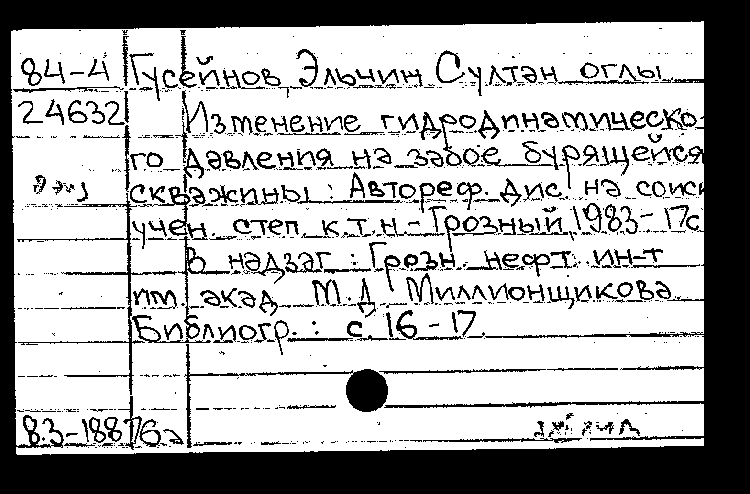 84-4 Гусейнов Эльчин Султан оглы
24632 Изменение гидродинамическо-
го давления на забое бурящейся
скважины : Автореф. дис. на соиск
учен. степ. к.т.н. - Грозный, 1983 - 17с
В надзаг : Грозн. нефт. ин-т
им. акад. М.Д. Миллионщикова
Библиогр. : с. 16 - 17.
83-18876а